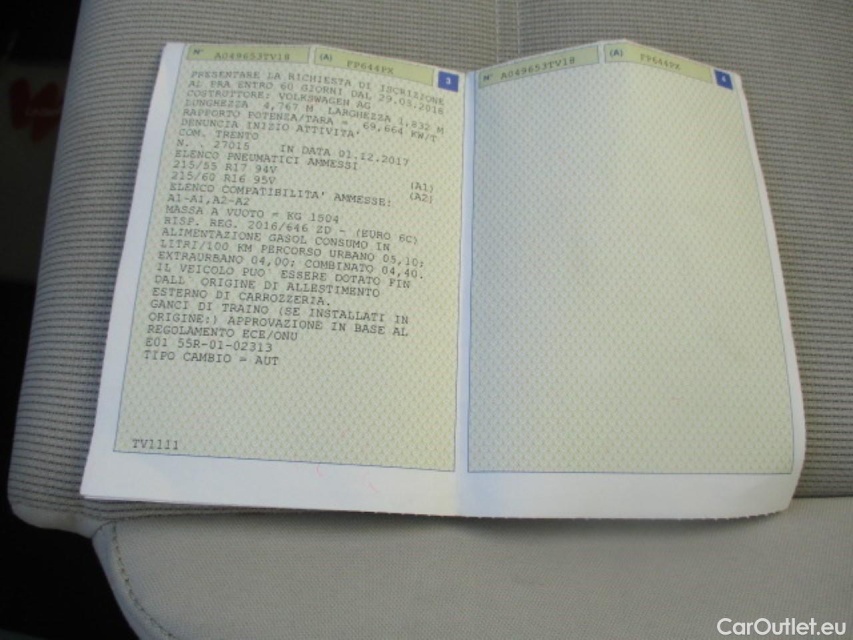 N° A049653TV18 (A) FP644PX 3
PRESENTARE LA RICHIESTA DI ISCRIZIONE
AL PRA ENTRO 60 GIORNI DAL 29.03.2018
COSTRUTTORE: VOLKSWAGEN AG
LUNGHEZZA 4,767 M LARGHEZZA 1,832 M
RAPPORTO POTENZA/TARA = 69,664 KW/T
DENUNCIA INIZIO ATTIVITA'
COM. TRENTO
N. . 27015 IN DATA 01.12.2017
ELENCO PNEUMATICI AMMESSI
215/55 R17 94V (A1)
215/60 R16 95V (A2)
ELENCO COMPATIBILITA' AMMESSE:
A1-A1,A2-A2
MASSA A VUOTO = KG 1504
RISP. REG. 2016/646 ZD - (EURO 6C)
ALIMENTAZIONE GASOL CONSUMO IN
LITRI/100 KM PERCORSO URBANO 05,10;
EXTRAURBANO 04,00; COMBINATO 04,40.
IL VEICOLO PUO' ESSERE DOTATO FIN
DALL' ORIGINE DI ALLESTIMENTO
ESTERNO DI CARROZZERIA.
GANCI DI TRAINO (SE INSTALLATI IN
ORIGINE:) APPROVAZIONE IN BASE AL
REGOLAMENTO ECE/ONU
E01 55R-01-02313
TIPO CAMBIO = AUT
TV1111
N° A049653TV18 (A) FP644PX 4
CarOutlet.eu